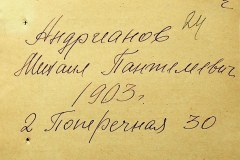 24
Андрианов
Михаил Пантелеевич
1903г.
2 Поперечная 30